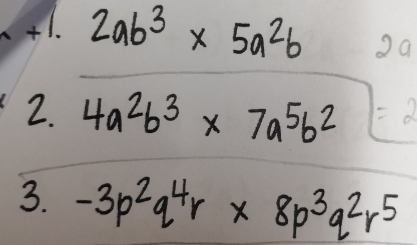 +1. 2ab³ × 5a²b 2a
2. 4a²b³ × 7a⁵b² = 2
3. -3p²q⁴r × 8p³q²r⁵